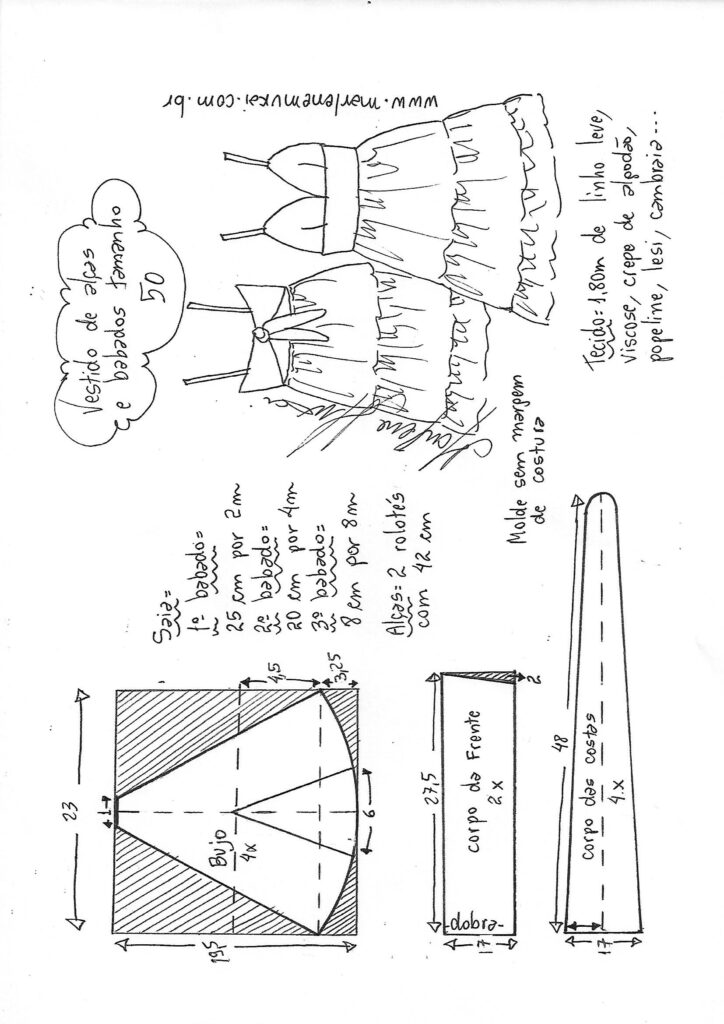 Vestido de alças
e babados tamanho
50
www.marlenemukai.com.br
Saia=
1º babado=
25 cm por 2m
2º babado=
20 cm por 4m
3º babado=
8 cm por 8m
Alças= 2 rolotés
com 42 cm
Tecido= 1,80m de linho leve,
viscose, crepe de algodão,
popeline, lesi, cambraia...
Molde sem margem
de costura
23
1
Bujo
4x
4,5
3,25
6
19,5
27,5
corpo da Frente
2x
-dobra-
17
2
48
corpo das costas
4x
17